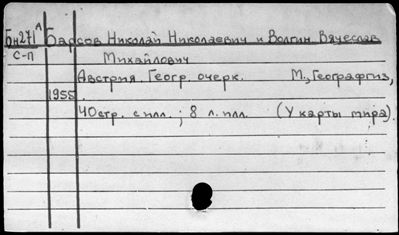 Бн271А Барсов Николай Николаевич и Волгин Вячеслав
С-П Михайлович
Австрия. Геогр. очерк. М., Географгиз,
1955.
40стр. с илл.; 8 л. илл. (У карты мира).